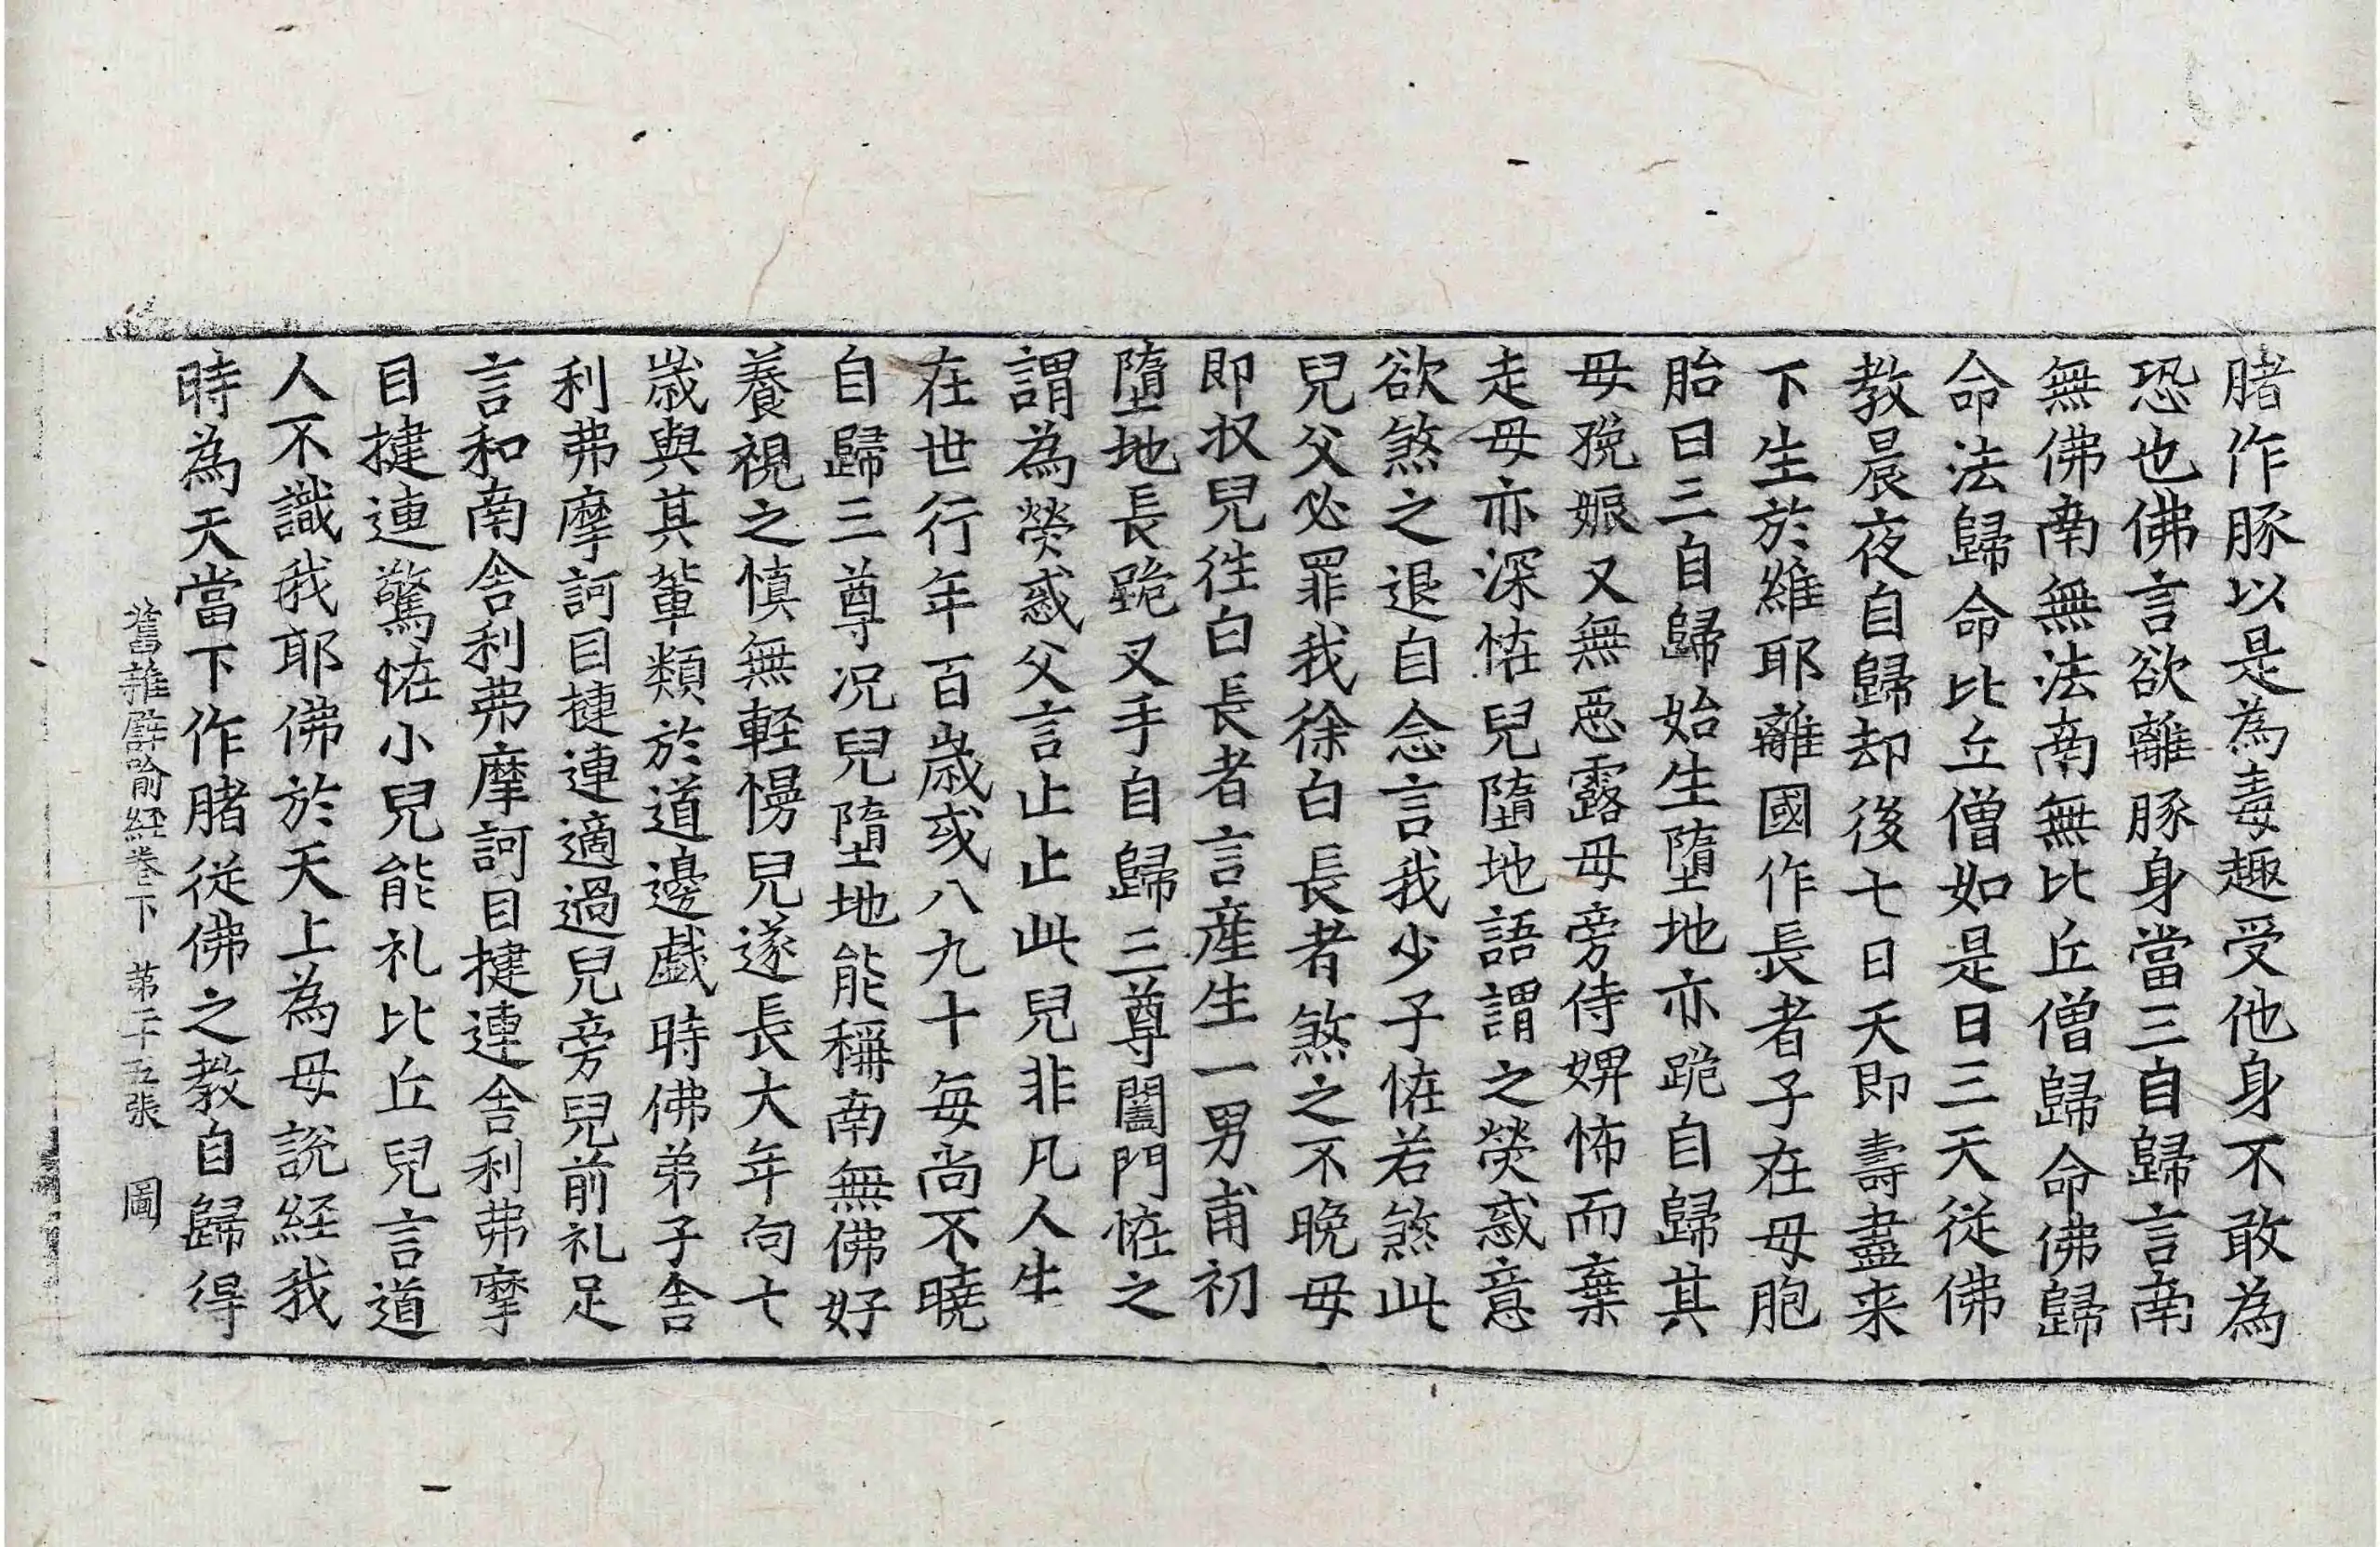 腤作豚以是為毒趣受他身不敢為
恐也佛言欲離豚身當三自歸言南
無佛南無法南無比丘僧歸命佛歸
命法歸命比丘僧如是日三天従佛
教晨夜自歸却後七日天即壽盡来
下生於維耶離國作長者子在母胞
胎日三自歸始生墮地亦跪自歸其
母㝃娠又無惡露母旁侍婢怖而棄
走母亦深恠兒墮地語謂之熒惑意
欲煞之退自念言我少子恠若煞此
兒父必罪我徐白長者煞之不晚母
即収兒徃白長者言産生一男甫初
墮地長跪叉手自歸三尊闔門恠之
謂為熒惑父言止止此兒非凡人生
在世行年百歲或八九十每尚不曉
自歸三尊况兒墮地能稱南無佛好
養視之慎無輕慢兒遂長大年向七
歲與其輩類於道邊戲時佛弟子舎
利弗摩訶目揵連適過兒旁兒前礼足
言和南舎利弗摩訶目揵連舎利弗摩
目揵連驚恠小兒能礼比丘兒言道
人不識我耶佛於天上為母說経我
時為天當下作腤従佛之教自歸得
舊雜譬喻経卷下 第二十五張 圖